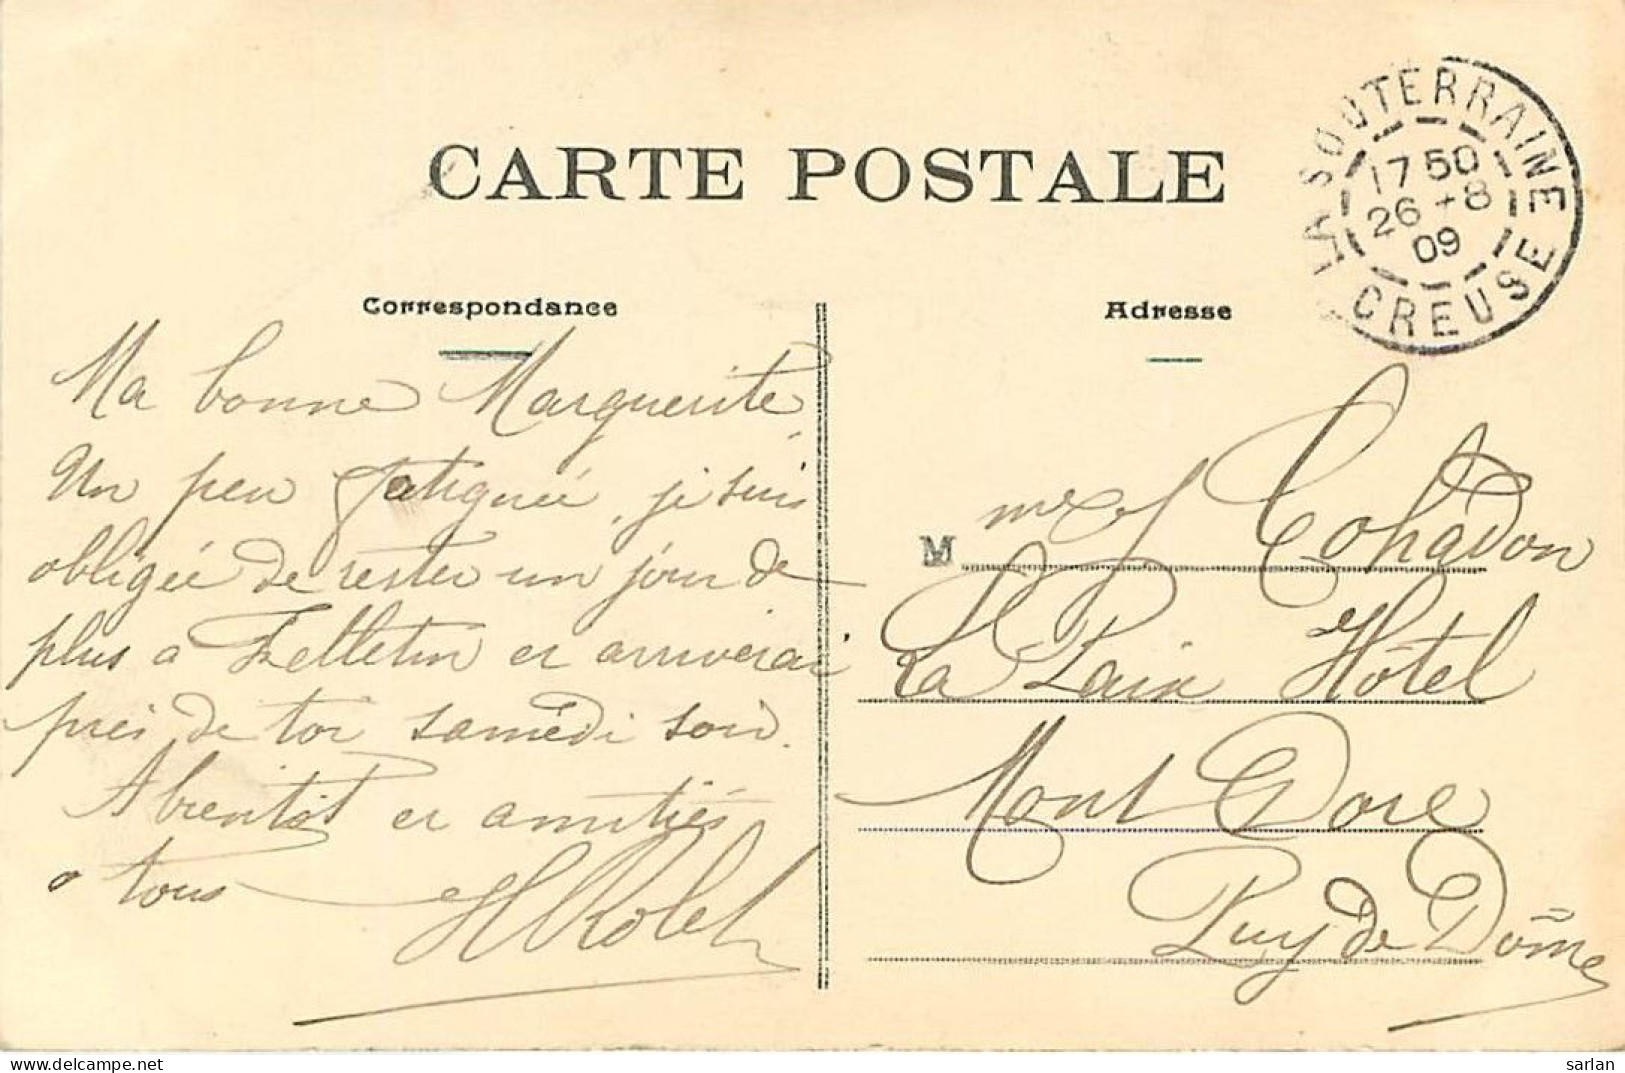 CARTE POSTALE
LA SOUTERRAINE
17 50
26 - 8
09
CREUSE
Correspondance
Adresse
Ma bonne Marguerite,
Un peu fatiguée, je suis
obligée de rester un jour de
plus a Felletin et arriverai
près de toi samedi soir.
A bientôt et amitiés
a tous
H Rolet
M me Cohadon
La Paix Hôtel
Mont Dore
Puy de Dôme
sarlan